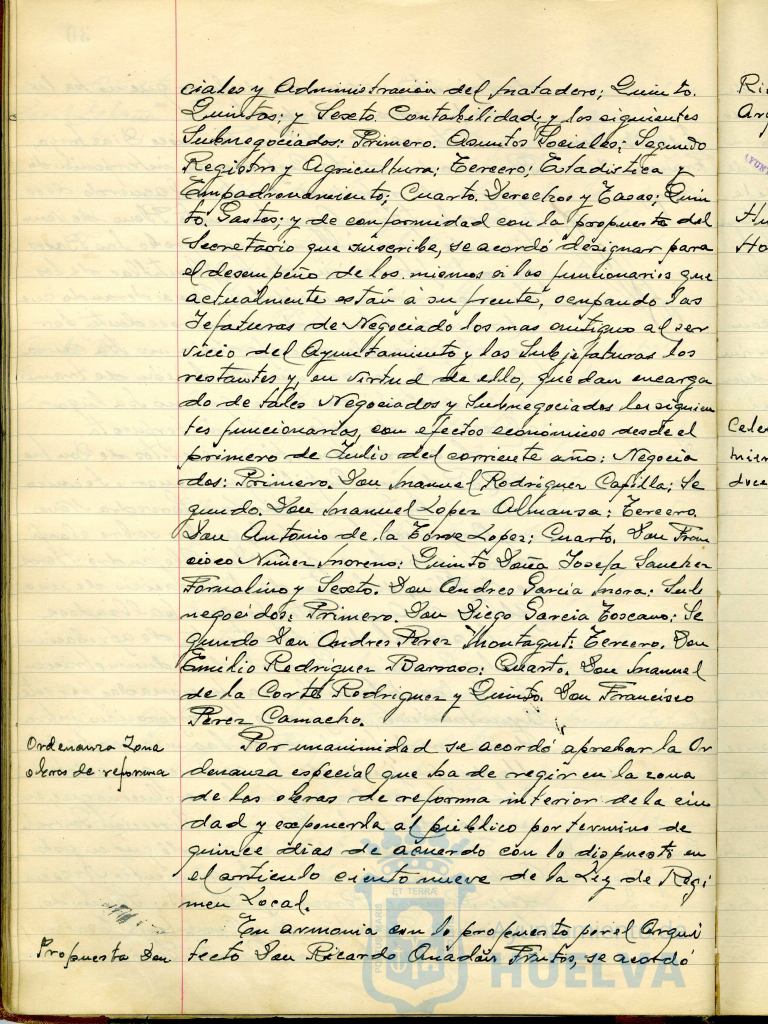 ciales y Administración del Matadero; Quinto.
Quintas; y Sexto. Contabilidad, y los siguientes
Subnegociados: Primero. Asuntos Sociales; Segundo
Registro y Agricultura; Tercero; Estadistica y
Empadronamiento; Cuarto. Derechos y Tasas; Quin
to. Gastos; y de conformidad con la propuesta del
Secretario que suscribe, se acordó designar para
el desempeño de los mismos a los funcionarios que
actualmente están á su frente, ocupando las
Jefaturas de Negociado los mas antiguos al ser
vicio del Ayuntamiento y las Subjefaturas los
restantes y, en virtud de ello, quedan encarga
do de tales Negociados y Subnegociados los siguien
tes funcionarios, con efectos económicos desde el
primero de Julio del corriente año: Negocia
dos: Primero. Don Manuel Rodriguez Capilla; Se
gundo. Don Manuel Lopez Almansa; Tercero.
Don Antonio de la Torre Lopez; Cuarto. Don Fran
cisco Nuñez Moreno; Quinto Doña Josefa Sanchez
Formalino y Sexto. Don Andres Garcia Mora: Sub
negocidos: Primero. Don Diego Garcia Toscano; Se
gundo Don Andres Perez Montagut; Tercero. Don
Emilio Rodriguez Barraso; Cuarto. Don Manuel
de la Corte Rodriguez y Quinto. Don Francisco
Perez Camacho.
Ordenanza Zona
obras de reforma
Por unanimidad se acordó aprobar la Or
denanza especial que ha de regir en la zona
de las obras de reforma interior de la ciu
dad y exponerla al público por termino de
quince dias de acuerdo con lo dispuesto en
el articulo ciento nueve de la Ley de Regi
men Local.
Propuesta Don
En armonia con lo propuesto por el Arqui
tecto Don Ricardo Anadón Frutos, se acordó
HUELVA